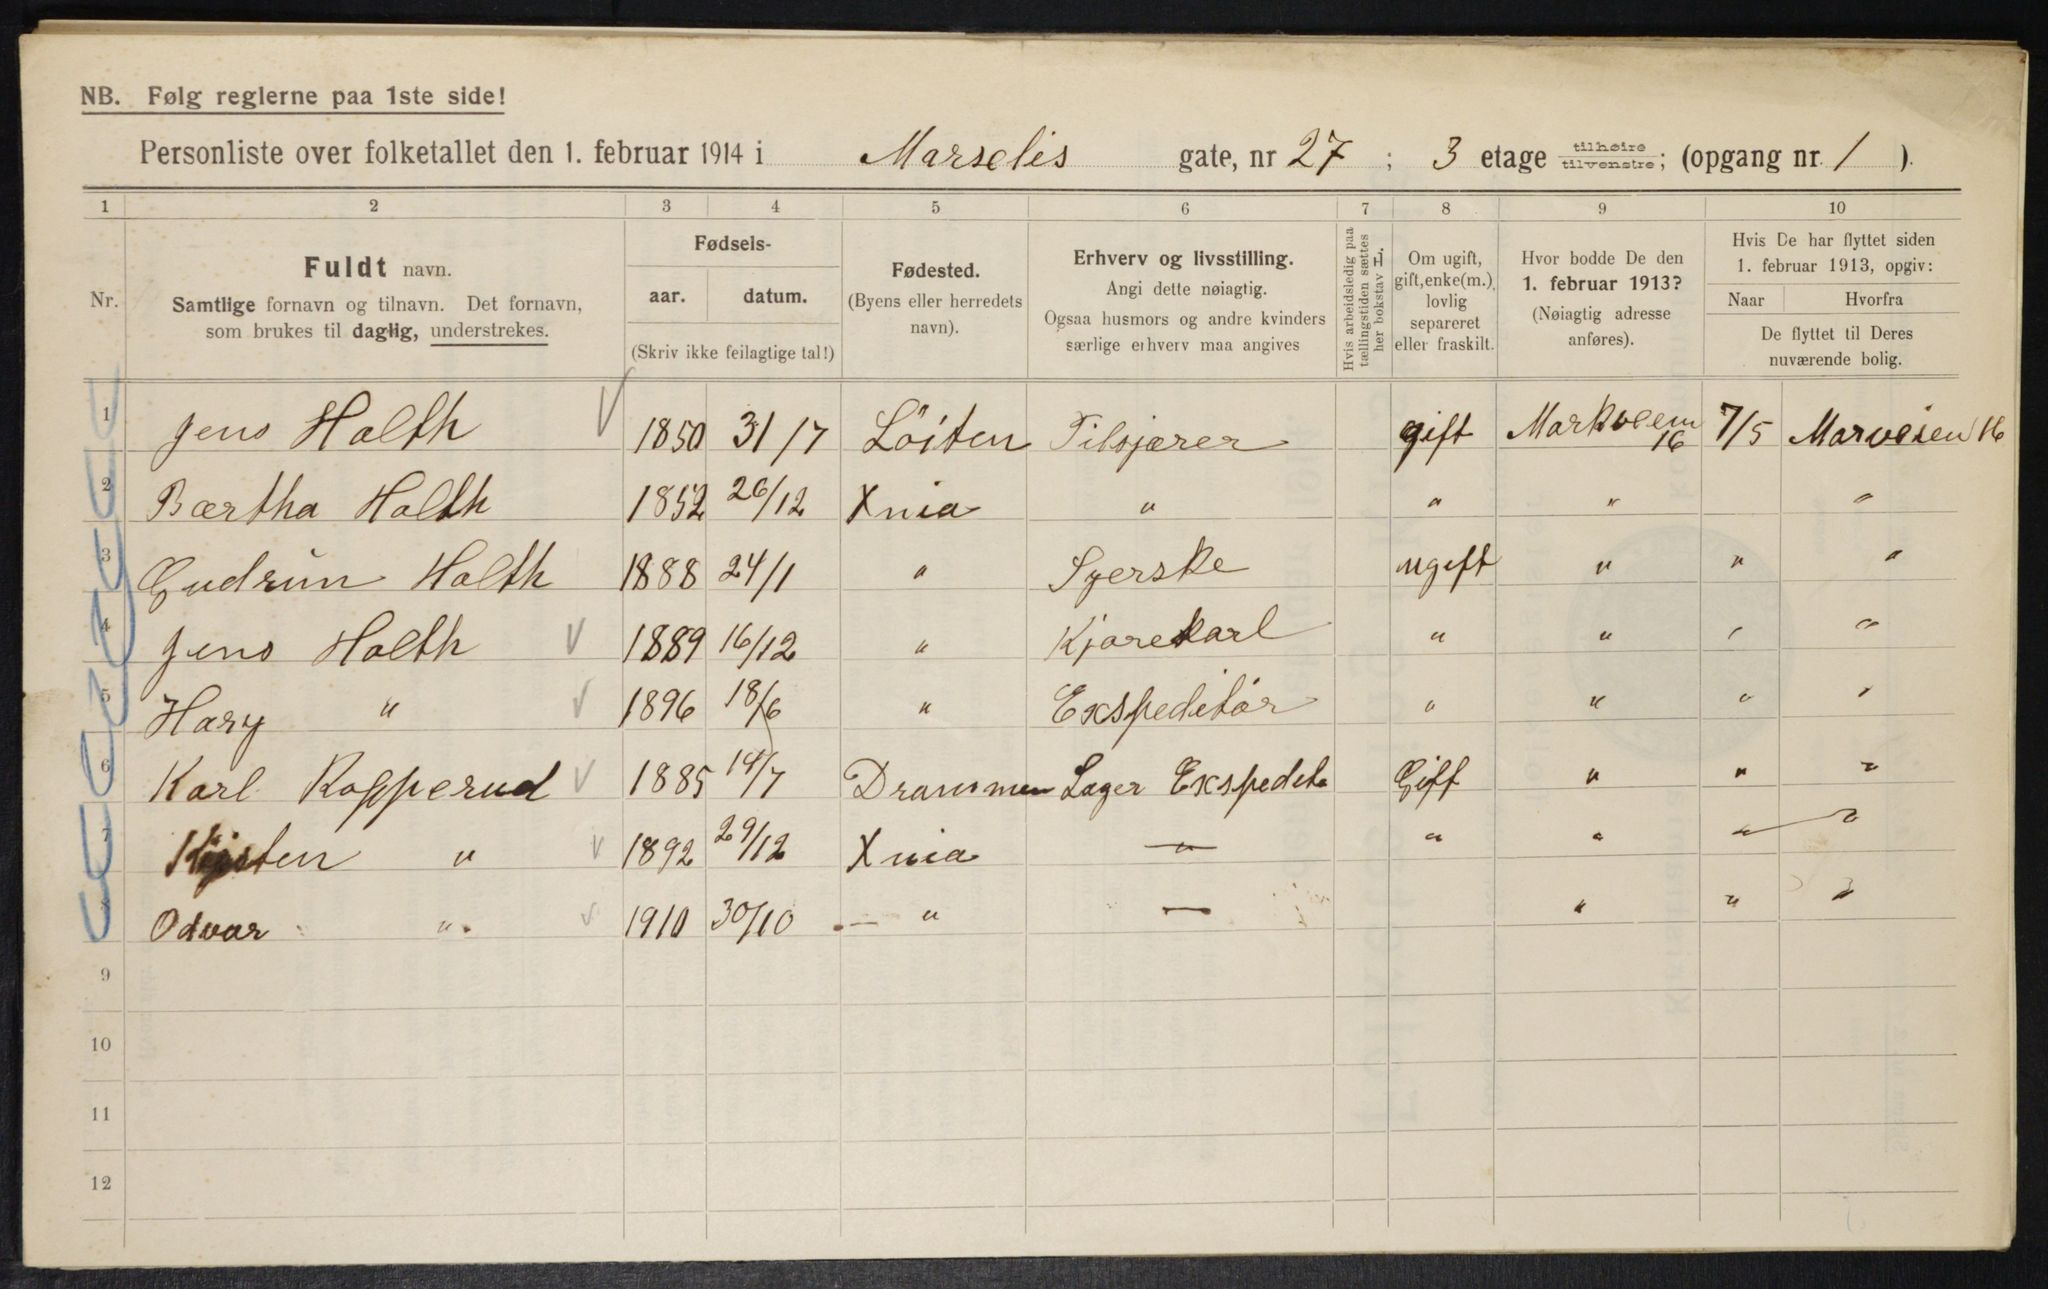 NB. Følg reglerne paa 1ste side!
Personliste over folketallet den 1. februar 1914 i Marselis gate, nr 27 ; 3 etage tilhøire tilvenstre; (opgang nr. 1 ).
1 2 3 4 5 6 7 8 9 10
Nr.
Fuldt navn.
Samtlige fornavn og tilnavn. Det fornavn,
som brukes til daglig, understrekes.
Fødsels-
aar. datum.
(Skriv ikke feilagtige tal!)
Fødested.
(Byens eller herredets
navn).
Erhverv og livsstilling.
Angi dette nøiagtig.
Ogsaa husmors og andre kvinders
særlige erhverv maa angives
Hvis arbeidsledig paa
tællingstiden sættes
her bokstav L.
Om ugift,
gift, enke(m.),
lovlig
separeret
eller fraskilt.
Hvor bodde De den
1. februar 1913?
(Nøiagtig adresse
anføres).
Hvis De har flyttet siden
1. februar 1913, opgiv:
Naar Hvorfra
De flyttet til Deres
nuværende bolig.
1 Jens Holth 1850 31/7 Löiten gift Markveien 16 7/5 16
2 Bærtha Holth 1852 26/12 Xnia " " " "
3 Gudrun Holth 1888 24/1 " Syerske ugift " " "
4 Jens Holth 1889 16/12 " Kjørekarl " " " "
5 Hary " 1896 18/6 " Ekspeditør " " " "
6 Karl Kopperud 1885 14/7 Drammen Lager Ekspedit. Gift " " "
7 " 1892 29/12 Xnia " " " " "
8 Odvar " 1910 30/10 — " — " " "
9
10
11
12